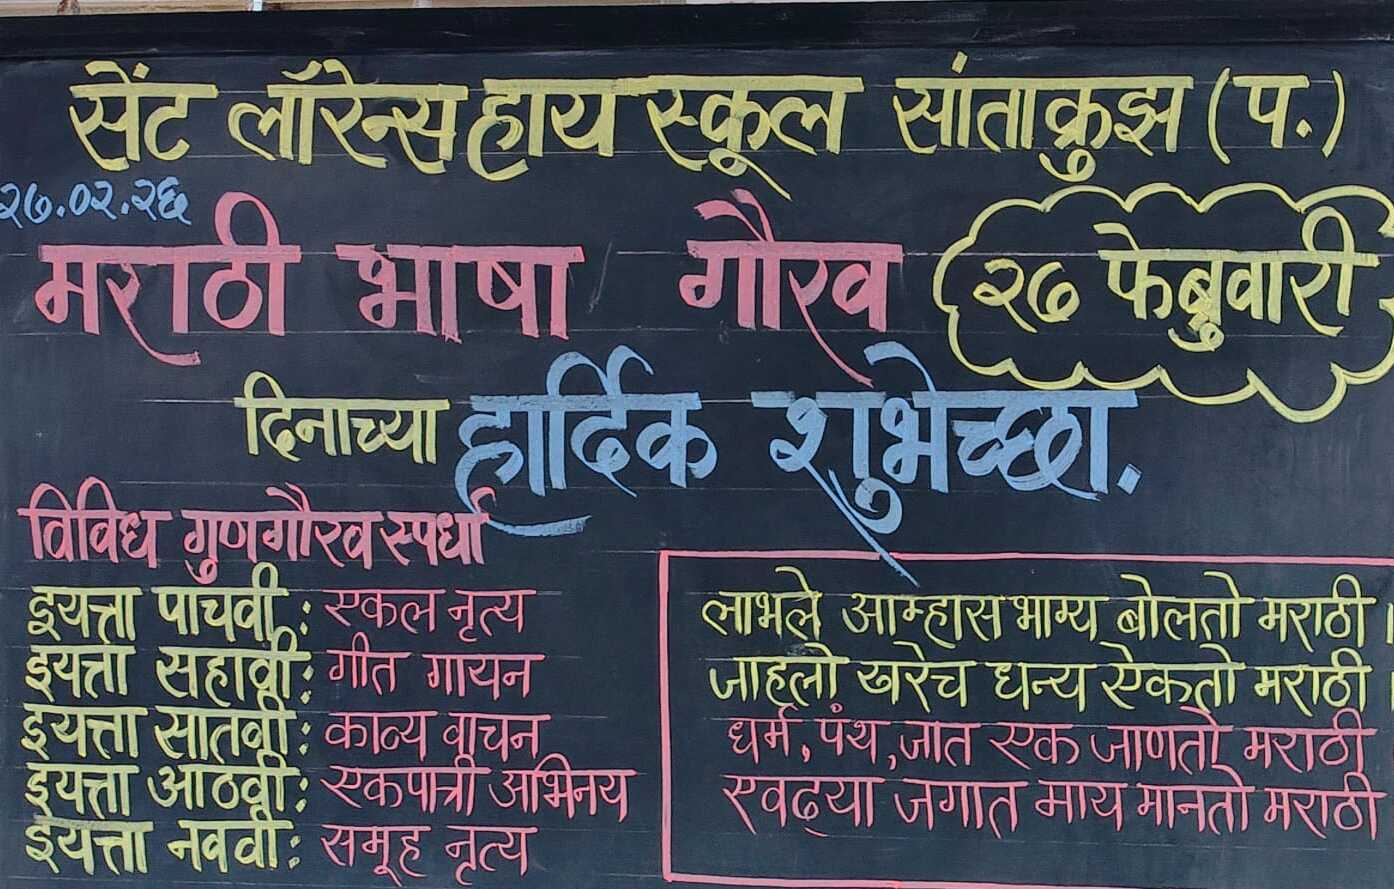 सेंट लॉरेन्स हाय स्कूल सांताक्रुझ (प.)
२७.०२.२६
मराठी भाषा गौरव २७ फेब्रुवारी
दिनाच्या हार्दिक शुभेच्छा.
विविध गुणगौरव स्पर्धा
इयत्ता पाचवी : एकल नृत्य
इयत्ता सहावी : गीत गायन
इयत्ता सातवी : काव्य वाचन
इयत्ता आठवी : एकपात्री अभिनय
इयत्ता नववी : समूह नृत्य
लाभले आम्हास भाग्य बोलतो मराठी ।
जाहलो खरेच धन्य ऐकतो मराठी ।
धर्म, पंथ, जात एक जाणतो मराठी
एवढ्या जगात माय मानतो मराठी